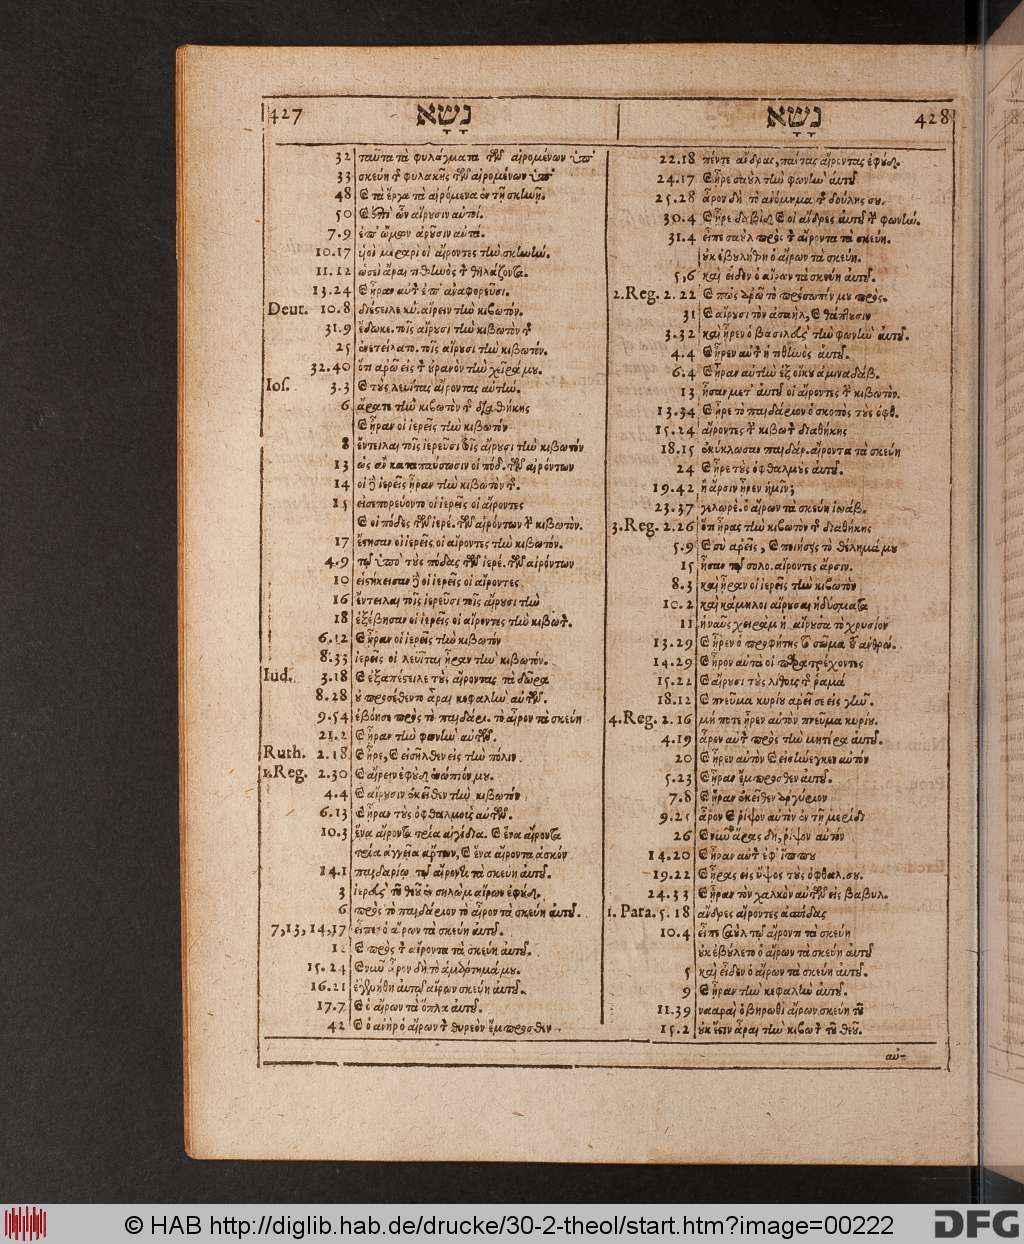 427 נָשָׂא
32 ταῦτα τὰ φυλάγματα τῶν αἰρομένων ὑπ'
33 σκεύη τ φυλακῆς τῶν αἰρομένων ὑπ'
48 ὲ τὰ ἔργα τὰ αἰρόμενα ἐν τῇ σκηνῇ.
50 ὲ ἐφ' ὧν αἴρυσιν αὐτοί.
7.9 ἐπ' ὤμων ἀρῦσιν αὐτά.
10.17 ὑοὶ μεραρὶ οἱ αἴροντες τὴν σκηνήν.
11.12 ὡσεὶ ἄραι τιθηνὸς τ θηλάζοντα.
13.24 ὲ ἦραν αὐτ ἐπ' ἀναφορεῦσι.
Deut. 10.8 διέστειλε κύ. αἴρειν τὴν κιβωτόν.
31.9 ἔδωκε. τοῖς αἴρυσι τὴν κιβωτὸν τ
25 ἐνετείλατο. τοῖς αἴρυσι τὴν κιβωτόν.
32.40 ὅτι ἀρῶ εἰς τ ὐρανὸν τὴν χεῖρά μυ.
Ios. 3.3 ὲ τὺς λευίτας αἴροντας αὐτήν.
6 ἄρατε τὴν κιβωτὸν τ διαθήκης
ὲ ἦραν οἱ ἱερεῖς τὴν κιβωτὸν
8 ἔντειλαι τοῖς ἱερεῦσι τοῖς αἴρυσι τὴν κιβωτόν
13 ὡς ἂν καταπαύσωσιν οἱ πόδ. τῶν αἰρόντων
14 οἱ δὲ ἱερεῖς ἦραν τὴν κιβωτὸν τ.
15 εἰσεπορεύοντο οἱ ἱερεῖς οἱ αἴροντες
ὲ οἱ πόδες τῶν ἱερέ. τῶν αἰρόντων τ κιβωτὸν.
17 ἔστησαν οἱ ἱερεῖς οἱ αἴροντες τὴν κιβωτόν.
4.9 τῷ ὑπὸ τὺς πόδας τῶν ἱερέ. τῶν αἰρόντων
10 εἱστήκεισαν δὲ οἱ ἱερεῖς οἱ αἴροντες
16 ἔντειλαι τοῖς ἱερεῦσι τοῖς αἴρυσι τὴν
18 ἐξέβησαν οἱ ἱερεῖς οἱ αἴροντες τὴν κιβωτ.
6.12 ὲ ἦραν οἱ ἱερεῖς τὴν κιβωτόν
8.33 ἱερεῖς οἱ λευῖται ἦραν τὴν κιβωτόν.
Iud. 3.18 ὲ ἐξαπέστειλε τὺς αἴροντας τὰ δῶρα
8.28 ὐ προσέθεντο ἆραι κεφαλὴν αὐτῶν.
9.54 ἐβόησε πρὸς τὸ παιδάρι. τὸ αἶρον τὰ σκεύη
21.2 ὲ ἦραν τὴν φωνὴν αὐτῶν.
Ruth. 2.18 ὲ ἦρε, ὲ εἰσῆλθεν εἰς τὴν πόλιν
1.Reg. 2.30 ὲ αἴρειν ἐφὺδ ἐνώπιόν μυ.
4.4 ὲ αἴρυσιν ἐκεῖθεν τὴν κιβωτόν
6.13 ὲ ἦραν τὺς ὀφθαλμοὺς αὐτῶν.
10.3 ἕνα αἴροντα τρία αἰγίδια. ὲ ἕνα αἴροντα
τρία ἀγγεῖα ἄρτων, ὲ ἕνα αἴροντα ἀσκὸν
14.1 παιδαρίῳ τῷ αἴροντι τὰ σκεύη αὐτῦ.
3 ἱερεὺς τῦ θεῦ ἐν σηλὼμ αἴρων ἐφύδ.
6 πρὸς τὸ παιδάριον τὸ αἶρον τὰ σκεύη αὐτῦ.
7,13,14,17 εἶπεν ὁ αἴρων τὰ σκεύη αὐτῦ.
12 ὲ πρὸς τ αἴροντα τὰ σκεύη αὐτῦ.
15.24 ὲ νῦν ἆρον δὴ τὸ ἁμάρτημά μυ.
16.21 ἐγενήθη αὐτῷ αἴρων σκεύη αὐτῦ.
17.7 ὲ ὁ αἴρων τὰ ὅπλα αὐτῦ.
42 ὲ ὁ ἀνὴρ ὁ αἴρων τ θυρεὸν ἔμπροσθεν
נָשָׂא 428
22.18 πέντε ἄνδρας, πάντας αἴροντας ἐφύδ.
24.17 ὲ ἦρε σαὺλ τὴν φωνὴν αὐτῦ
25.28 ἆρον δὴ τὸ ἀνόμημα τ δύλης συ.
30.4 ὲ ἦρε δαβὶδ ὲ οἱ ἄνδρες αὐτῦ τ φωνήν.
31.4 εἶπε σαὺλ πρὸς τ αἴροντα τὰ σκεύη.
ὐκ ἐβυλήθη ὁ αἴρων τὰ σκεύη.
5,6 καὶ εἶδεν ὁ αἴρων τὰ σκεύη αὐτῦ.
2.Reg. 2.22 ὲ πῶς ἀρῶ τὸ πρόσωπόν μυ πρὸς.
31 ὲ αἴρυσι τὸν ἀσαὴλ, ὲ θάπτυσιν
3.32 καὶ ἦρεν ὁ βασιλεὺς τὴν φωνὴν αὐτῦ.
4.4 ὲ ἦρεν αὐτ ἡ τιθηνὸς αὐτῦ.
6.4 ὲ ἦραν αὐτὴν ἐξ οἴκυ ἀμιναδάβ.
13 ἦσαν μετ' αὐτῦ οἱ αἴροντες τ κιβωτὸν.
13.34 ὲ ἦρε τὸ παιδάριον ὁ σκοπὸς τὺς ὀφθ.
15.24 αἴροντες τ κιβωτ διαθήκης
18.15 ἐκύκλωσαν παιδάρ. αἴροντα τὰ σκεύη
24 ὲ ἦρε τὺς ὀφθαλμὺς αὐτῦ.
19.42 ἢ ἄρσιν ἦρεν ἡμῖν;
23.37 γελωρὲ. ὁ αἴρων τὰ σκεύη ἰωάβ.
3.Reg. 2.26 ὅτι ἦρας τὴν κιβωτὸν τ διαθήκης
5.9 ὲ σὺ ἀρεῖς, ὲ ποιήσεις τὸ θέλημά μυ
15 ἦσαν τῷ σολο. αἴροντες ἄρσιν.
8.3 καὶ ἦραν οἱ ἱερεῖς τὴν κιβωτὸν
10.2 καὶ κάμηλοι αἴρυσαι ἡδύσματα
11 ἡ ναῦς χειρὰμ ἡ αἴρυσα τὸ χρυσίον
13.29 ὲ ἦρεν ὁ προφήτης τὸ σῶμα τῦ ἀνθρώ.
14.29 ὲ ἦρον αὐτὰ οἱ παρατρέχοντες
15.22 ὲ αἴρυσι τὺς λίθυς τ ῥαμά
18.12 ὲ πνεῦμα κυρίυ ἀρεῖ σε εἰς γῆν.
4.Reg. 2.16 μή ποτε ἦρεν αὐτὸν πνεῦμα κυρίυ.
4.19 ἆρον αὐτ πρὸς τὴν μητέρα αὐτῦ.
20 ὲ ἦρεν αὐτὸν ὲ εἰσήνεγκεν αὐτόν
5.23 ὲ ἦραν ἔμπροσθεν αὐτῦ.
7.8 ὲ ἦραν ἐκεῖθεν ἀργύριον
9.25 ἆρον ὲ ῥίψον αὐτὸν ἐν τῇ μερίδι
26 ὲ νῦν ἄρας δὴ, ῥίψον αὐτόν
14.20 ὲ ἦραν αὐτ ἐφ' ἵππυ
19.22 ὲ ἦρας εἰς ὕψος τὺς ὀφθαλ. συ.
24.33 ὲ ἦραν τὸν χαλκὸν αὐτῶν εἰς βαβυλ.
1. Para. 5.18 ἄνδρες αἴροντες ἀσπίδας
10.4 εἶπε σαὺλ τῷ αἴροντι τὰ σκεύη
ὐκ ἐβύλετο ὁ αἴρων τὰ σκεύη αὐτῦ
5 καὶ εἶδεν ὁ αἴρων τὰ σκεύη αὐτῦ.
9 ὲ ἦραν τὴν κεφαλὴν αὐτῦ.
11.39 νααραὶ ὁ βηρωθὶ αἴρων σκεύη τῦ
15.2 ὐκ ἔστιν ἆραι τὴν κιβωτ τῦ θεῦ.
αὐ-
© HAB http://diglib.hab.de/drucke/30-2-theol/start.htm?image=00222
DFG